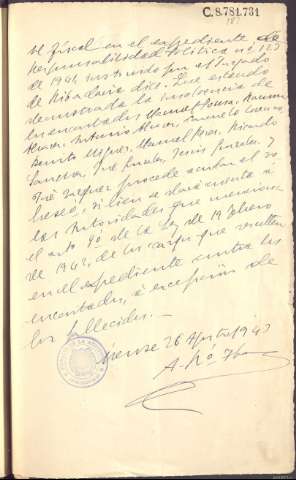 C.8.781.731
El Fiscal en el expediente de
responsabilidad política nº 123
de 1941, instruido por el Juzgado
de Ribadavia dice: Que estando
demostrada la insolvencia de
los encartados Manuel
Antonio Manuel
Benito Manuel Ricardo
José Jesús y
José procede acordar el so-
breseo, si bien se dará cuenta a
las Autoridades que menciona
el artº 8º de la Ley de 19 febrero
de 1942, de los cargos que resulten
en el expediente contra los
encartados, a excepción de
los fallecidos.—
Orense 26 Agosto 1943